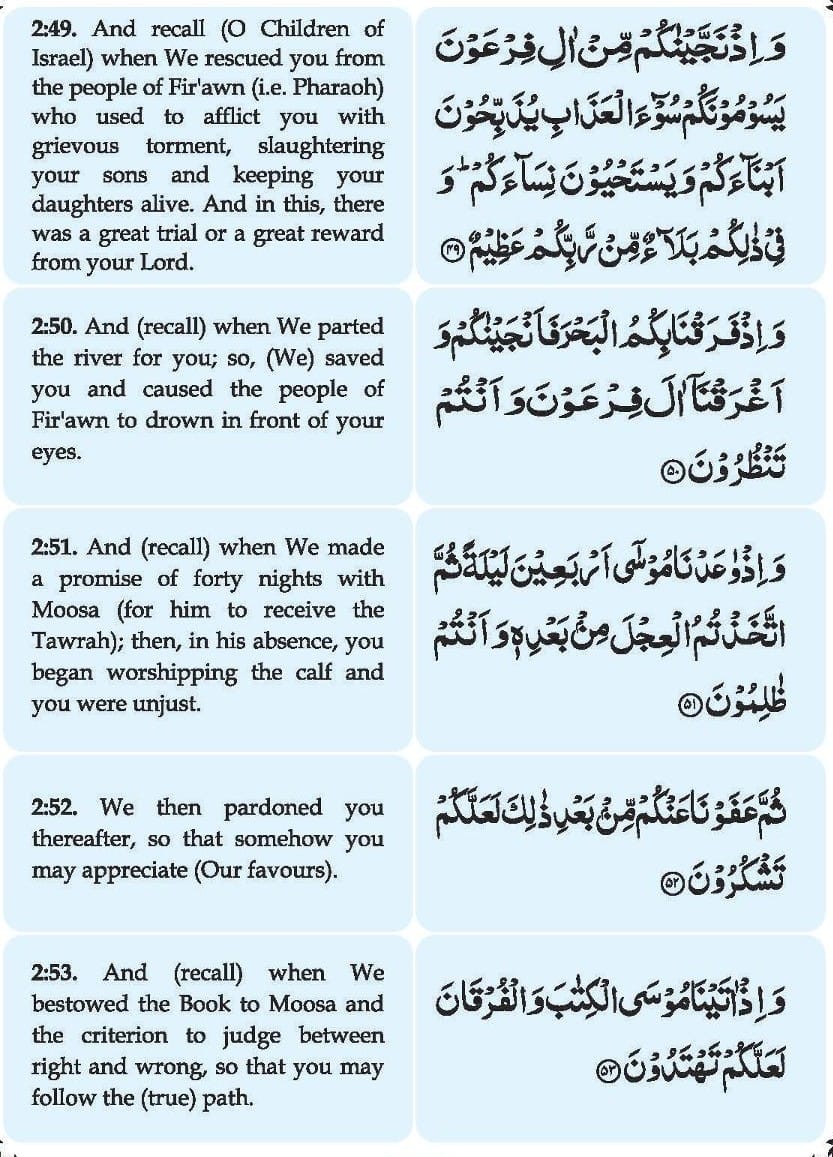 2:49. And recall (O Children of
Israel) when We rescued you from
the people of Fir'awn (i.e. Pharaoh)
who used to afflict you with
grievous torment, slaughtering
your sons and keeping your
daughters alive. And in this, there
was a great trial or a great reward
from your Lord.
وَ اِذْ نَجَّیْنٰكُمْ مِّنْ اٰلِ فِرْعَوْنَ
یَسُوْمُوْنَكُمْ سُوْٓءَ الْعَذَابِ یُذَبِّحُوْنَ
اَبْنَآءَكُمْ وَ یَسْتَحْیُوْنَ نِسَآءَكُمْؕ وَ
فِیْ ذٰلِكُمْ بَلَآءٌ مِّنْ رَّبِّكُمْ عَظِیْمٌ ﴿۴۹﴾
2:50. And (recall) when We parted
the river for you; so, (We) saved
you and caused the people of
Fir'awn to drown in front of your
eyes.
وَ اِذْ فَرَقْنَا بِكُمُ الْبَحْرَ فَاَنْجَیْنٰكُمْ وَ
اَغْرَقْنَاۤ اٰلَ فِرْعَوْنَ وَ اَنْتُمْ
تَنْظُرُوْنَ ﴿۵۰﴾
2:51. And (recall) when We made
a promise of forty nights with
Moosa (for him to receive the
Tawrah); then, in his absence, you
began worshipping the calf and
you were unjust.
وَ اِذْ وٰعَدْنَا مُوْسٰۤى اَرْبَعِیْنَ لَیْلَةً ثُمَّ
اتَّخَذْتُمُ الْعِجْلَ مِنْۢ بَعْدِهٖ وَ اَنْتُمْ
ظٰلِمُوْنَ ﴿۵۱﴾
2:52. We then pardoned you
thereafter, so that somehow you
may appreciate (Our favours).
ثُمَّ عَفَوْنَا عَنْكُمْ مِّنْۢ بَعْدِ ذٰلِكَ لَعَلَّكُمْ
تَشْكُرُوْنَ ﴿۵۲﴾
2:53. And (recall) when We
bestowed the Book to Moosa and
the criterion to judge between
right and wrong, so that you may
follow the (true) path.
وَ اِذْ اٰتَیْنَا مُوْسَى الْكِتٰبَ وَ الْفُرْقَانَ
لَعَلَّكُمْ تَهْتَدُوْنَ ﴿۵۳﴾